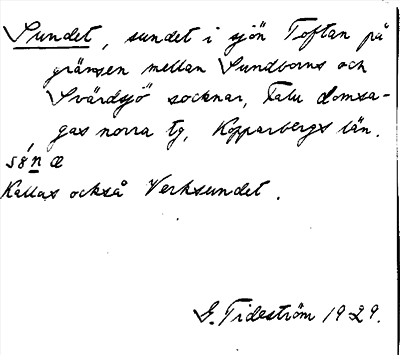 Sundet, sundet i sjön Toftan på
gränsen mellan Sundborns och
Svärdsjö socknar, Falu domsa-
gas norra tg, Kopparbergs län.
sǿn æ
Kallas också Verksundet.
G. Tideström 1929.